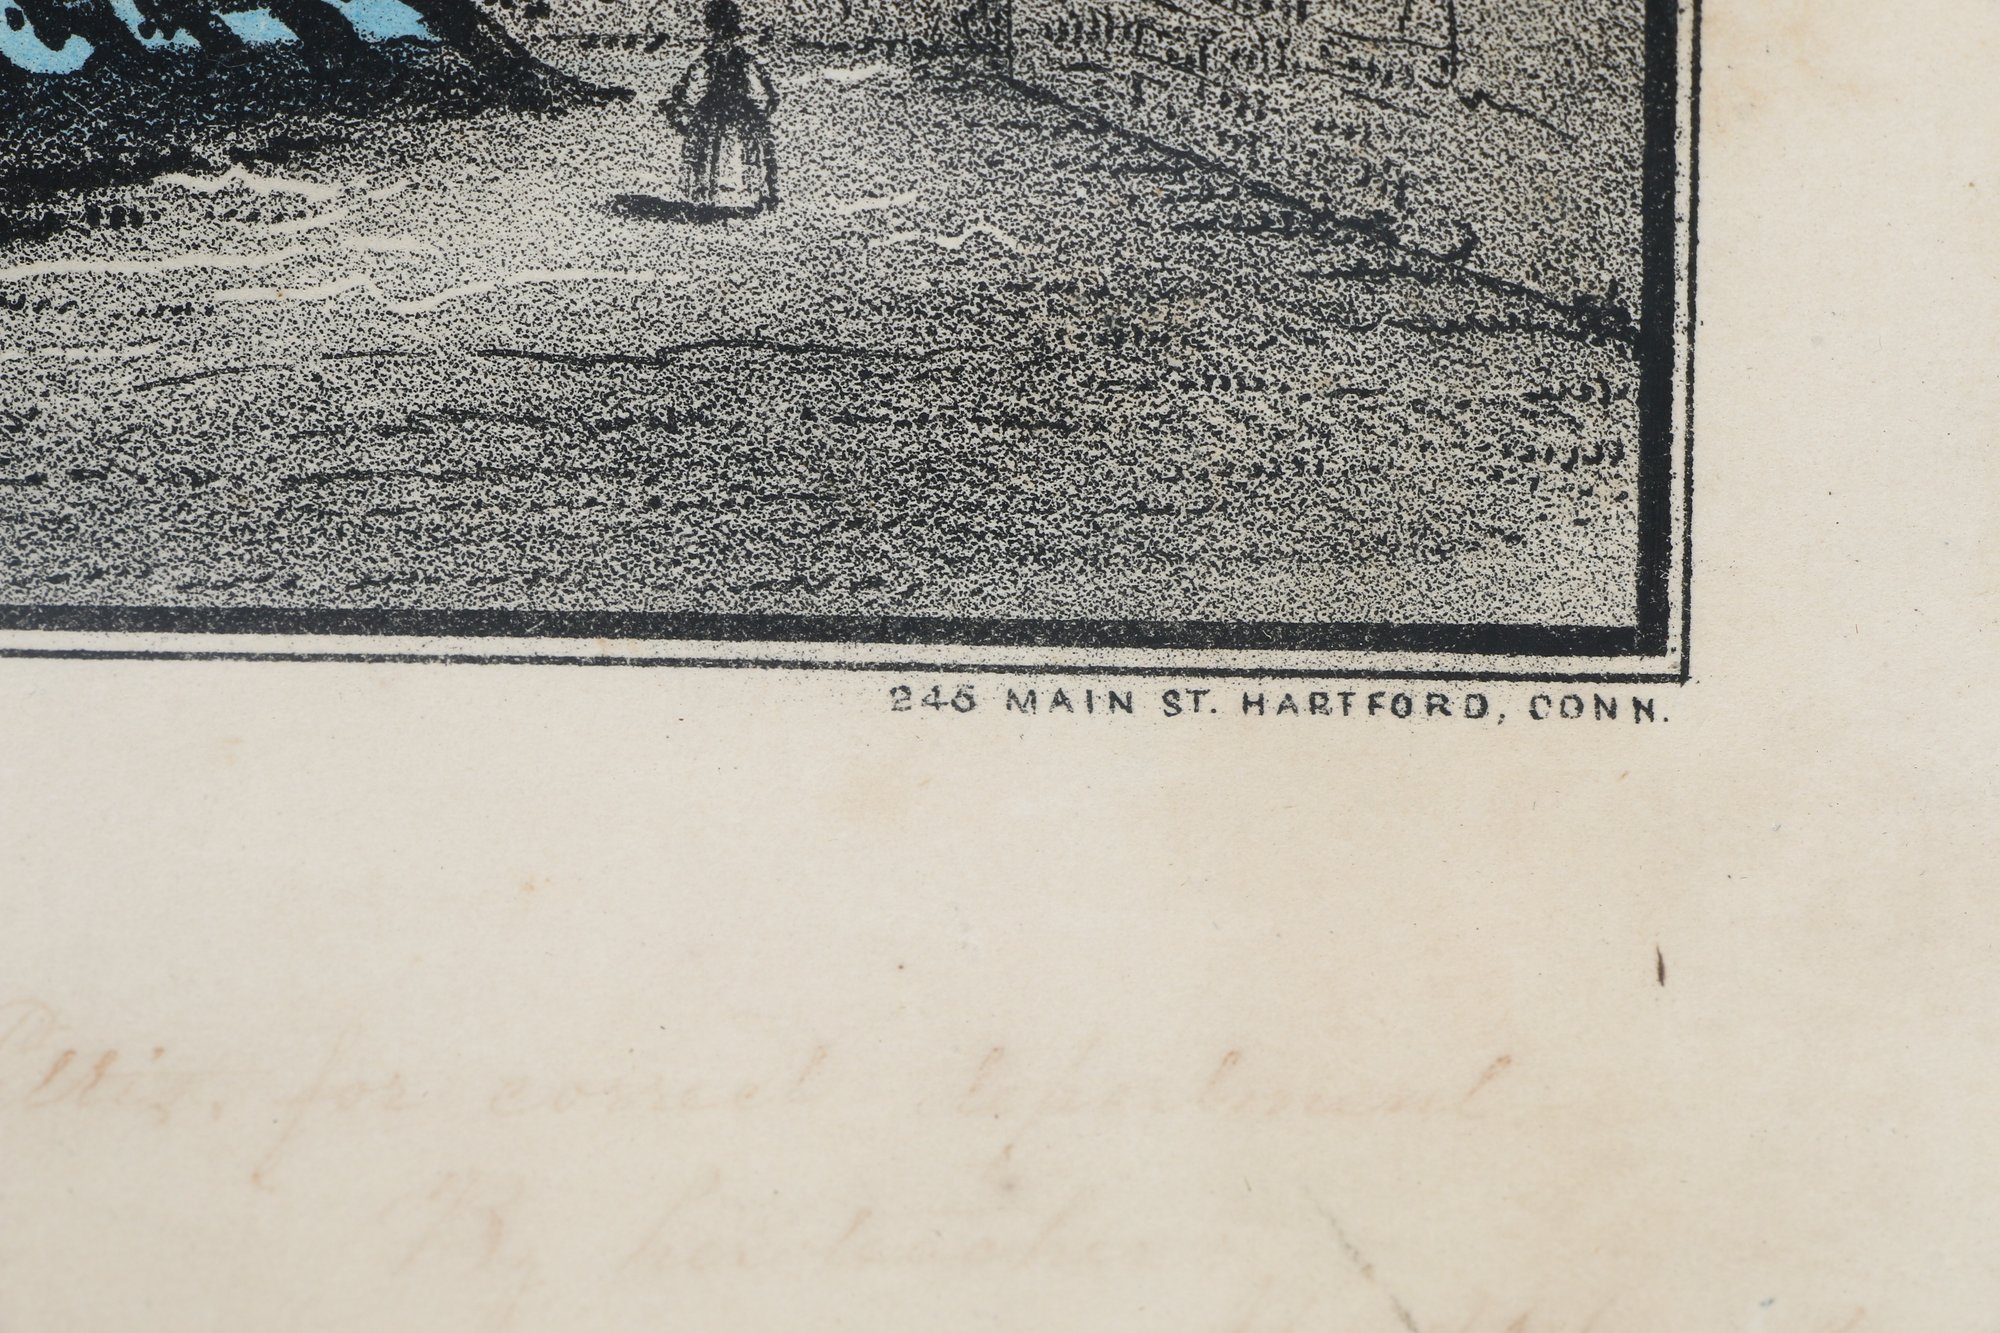 245 MAIN ST. HARTFORD, CONN.
for correct deportment
By her teacher